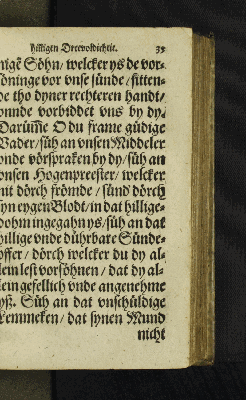 hilligen Dreevoldicheit. 35
nigē Söhn/ welcker ys de vor-
söninge vor vnse sünde/ sitten-
de tho dyner rechteren handt/
vnde vorbiddet vns by dy/
Darūme O du frame güdige
Vader/ süh an vnsen Middeler
vnde vörspraken by dy/ süh an
vnsen Hogenpreester/ welcker
nit dörch frömde / sünd dörch
syn eygen Blodt/ in dat hillige-
dohm ingegahn ys/ süh an dat
hillige vnde dührbare Sünde-
offer/ dörch welcker du dy al-
lem lest vorsöhnen / dat dy al-
lein gefellich vnde angenehme
yß. Süh an dat vnschüldige
Lemmeken/ dat synen Mund
nicht